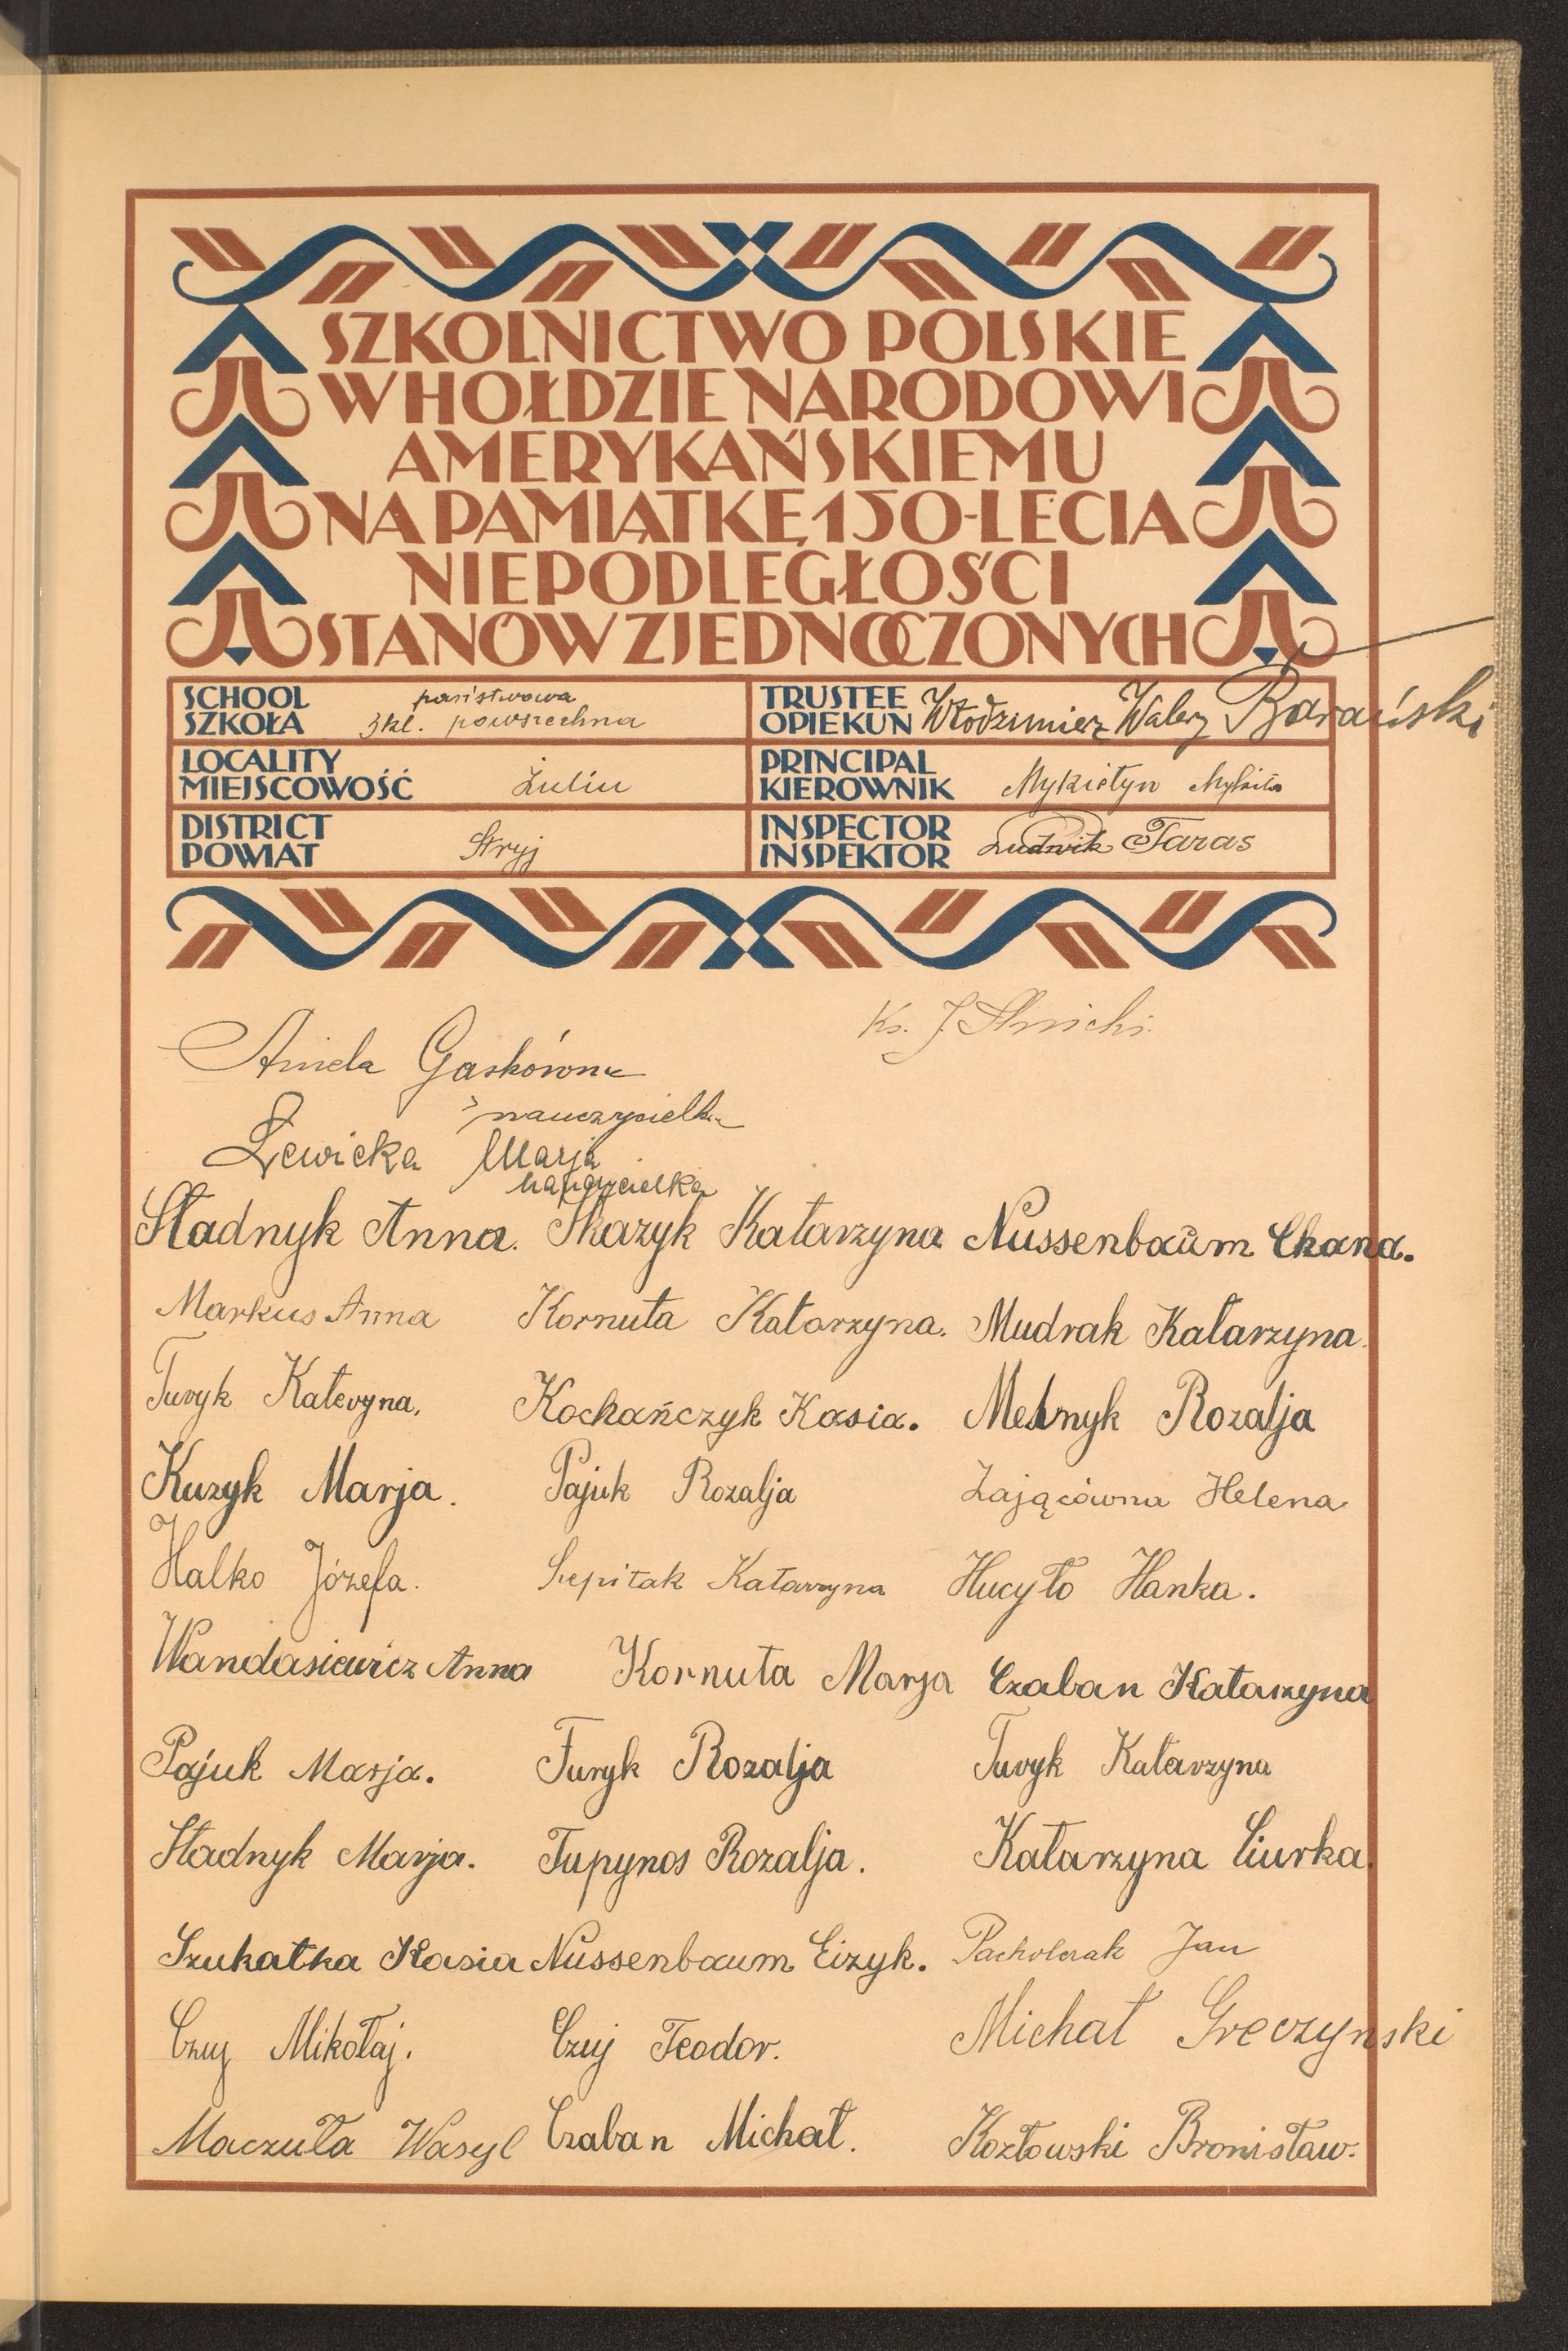 SZKOLNICTWO POLSKIE
W HOŁDZIE NARODOWI
AMERYKAŃSKIEMU
NA PAMIĄTKĘ 150-LECIA
NIEPODLEGŁOŚCI
STANÓW ZJEDNOCZONYCH
SCHOOL
SZKOŁA
państwowa
3 kl. powszechna
TRUSTEE
OPIEKUN
Włodzimierz Walery Barański
LOCALITY
MIEJSCOWOŚĆ
Żulin
PRINCIPAL
KIEROWNIK
Mykietyn Mykita
DISTRICT
POWIAT
Stryj
INSPECTOR
INSPEKTOR
Ludwik Taras
Ks. J.
Aniela Gaskówna
nauczycielka
Lewicka Marja
nauczycielka
Stadnyk Anna. Skazyk Katarzyna Nussenbaum Chana.
Markus Anna Kornuta Katarzyna. Mudrak Katarzyna.
Turyk Kateryna. Kochańczyk Kasia. Melnyk Rozalja
Kuzyk Marja. Pajuk Rozalja Zającówna Helena
Halko Józefa. Szepitak Katarzyna Hucyło Hanka.
Wandasiewicz Anna Kornuta Marja Czaban Katarzyna
Pajuk Marja. Furyk Rozalja Turyk Katarzyna
Stadnyk Marja. Tupynos Rozalja. Katarzyna Ciurka.
Szukatka Kasia Nussenbaum Eizyk. Pacholczak Jan
Czuj Mikołaj. Czuj Teodor. Michał Greczynski
Maczuła Wasyl Czaban Michał. Kozłowski Bronisław.